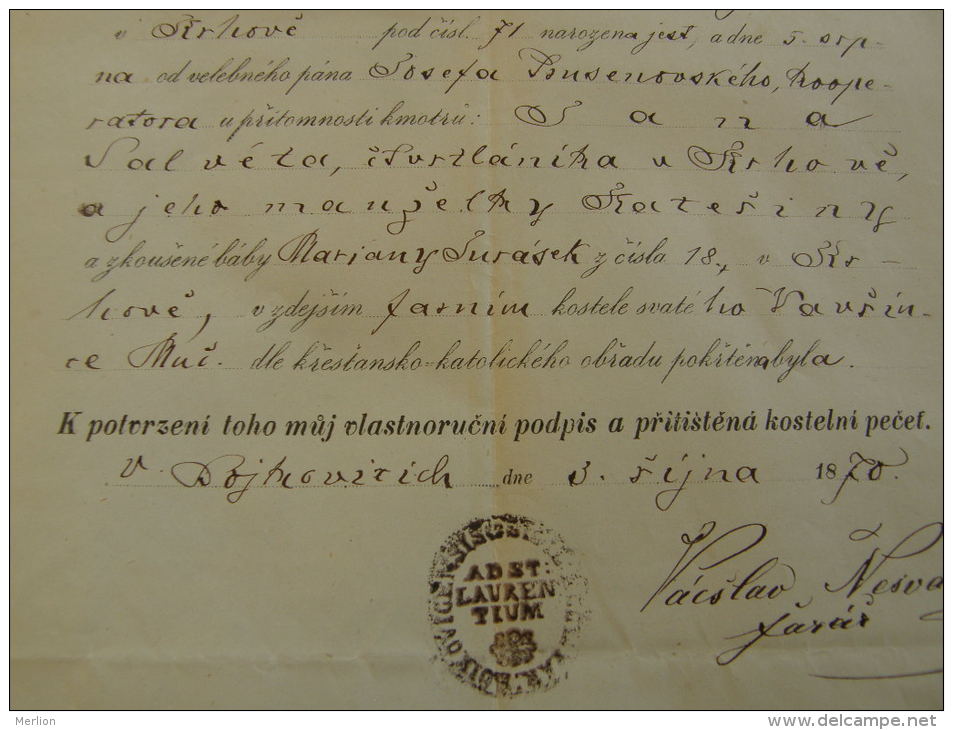 v Krhově pod čísl. 71 narozena jest, a dne 5. srp-
na od velebného pána Josefa Busenovského, koope-
ratora u přítomnosti kmotrů: Jana
Salvéta, čtvrtláníka v Krhově,
a jeho manželky Kateřiny
a zkoušené báby Mariany Jurásek z čísla 18, v Kr-
hově, v zdejším farním kostele svatého Vavřin-
ce Muč. dle křesťansko-katolického obřadu pokřtěna byla.
K potvrzení toho můj vlastnoruční podpis a přitištěná kostelní pečeť.
V Bojkovicích dne 3. října 1870.
AD ST:
LAUREN
TIUM
Vácslav Nesva
farář
Merlion
http://www.delcampe.net